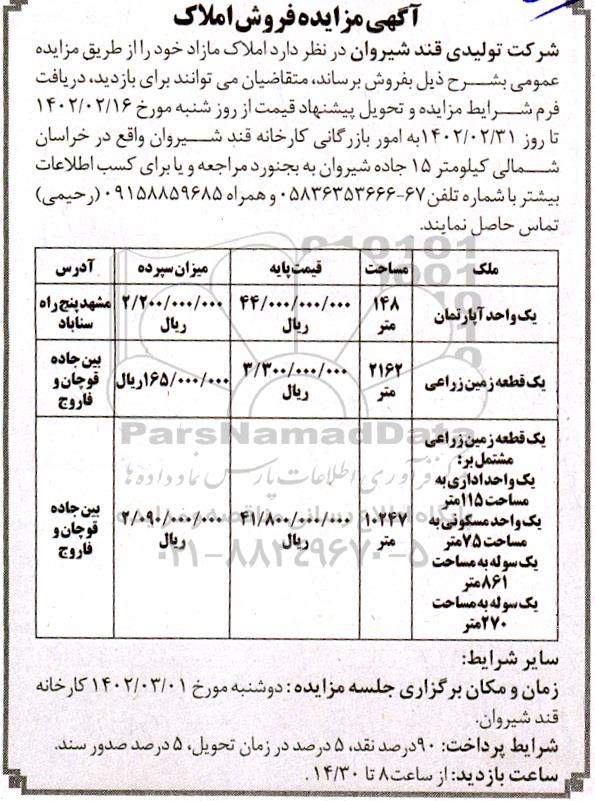 آگهی مزایده فروش املاک
شرکت تولیدی قند شیروان در نظر دارد املاک مازاد خود را از طریق مزایده
عمومی بشرح ذیل بفروش برساند، متقاضیان می توانند برای بازدید، دریافت
فرم شرایط مزایده و تحویل پیشنهاد قیمت از روز شنبه مورخ ۱۴۰۲/۰۲/۱۶
تا روز ۱۴۰۲/۰۲/۳۱ به امور بازرگانی کارخانه قند شیروان واقع در خراسان
شمالی کیلومتر ۱۵ جاده شیروان به بجنورد مراجعه و یا برای کسب اطلاعات
بیشتر با شماره تلفن ۶۷-۰۵۸۳۶۳۵۳۶۶۶ و همراه ۰۹۱۵۸۸۵۹۶۸۵ (رحیمی)
تماس حاصل نمایند.
ملک مساحت قیمت پایه میزان سپرده آدرس
یک واحد آپارتمان ۱۴۸ متر ۴۴/۰۰۰/۰۰۰/۰۰۰ ریال ۲/۲۰۰/۰۰۰/۰۰۰ ریال مشهد پنج راه سناباد
یک قطعه زمین زراعی ۲۱۶۲ متر ۳/۳۰۰/۰۰۰/۰۰۰ ریال ۱۶۵/۰۰۰/۰۰۰ ریال بین جاده قوچان و فاروج
یک قطعه زمین زراعی
مشتمل بر:
یک واحد اداری به
مساحت ۱۱۵ متر
یک واحد مسکونی به
مساحت ۷۵ متر
یک سوله به مساحت
۸۶۱ متر
یک سوله به مساحت
۲۷۰ متر
۱۰۲۴۷ متر ۴۱/۸۰۰/۰۰۰/۰۰۰ ریال ۲/۰۹۰/۰۰۰/۰۰۰ ریال بین جاده قوچان و فاروج
ParsNamadData
مرکز فرآوری اطلاعات پارس نماد داده ها
۰۲۱-۸۸۳۴۹۶۷۰-۵
سایر شرایط:
زمان و مکان برگزاری جلسه مزایده: دوشنبه مورخ ۱۴۰۲/۰۳/۰۱ کارخانه
قند شیروان.
شرایط پرداخت: ۹۰درصد نقد، ۵ درصد در زمان تحویل، ۵ درصد صدور سند.
ساعت بازدید: از ساعت ۸ تا ۱۴/۳۰.